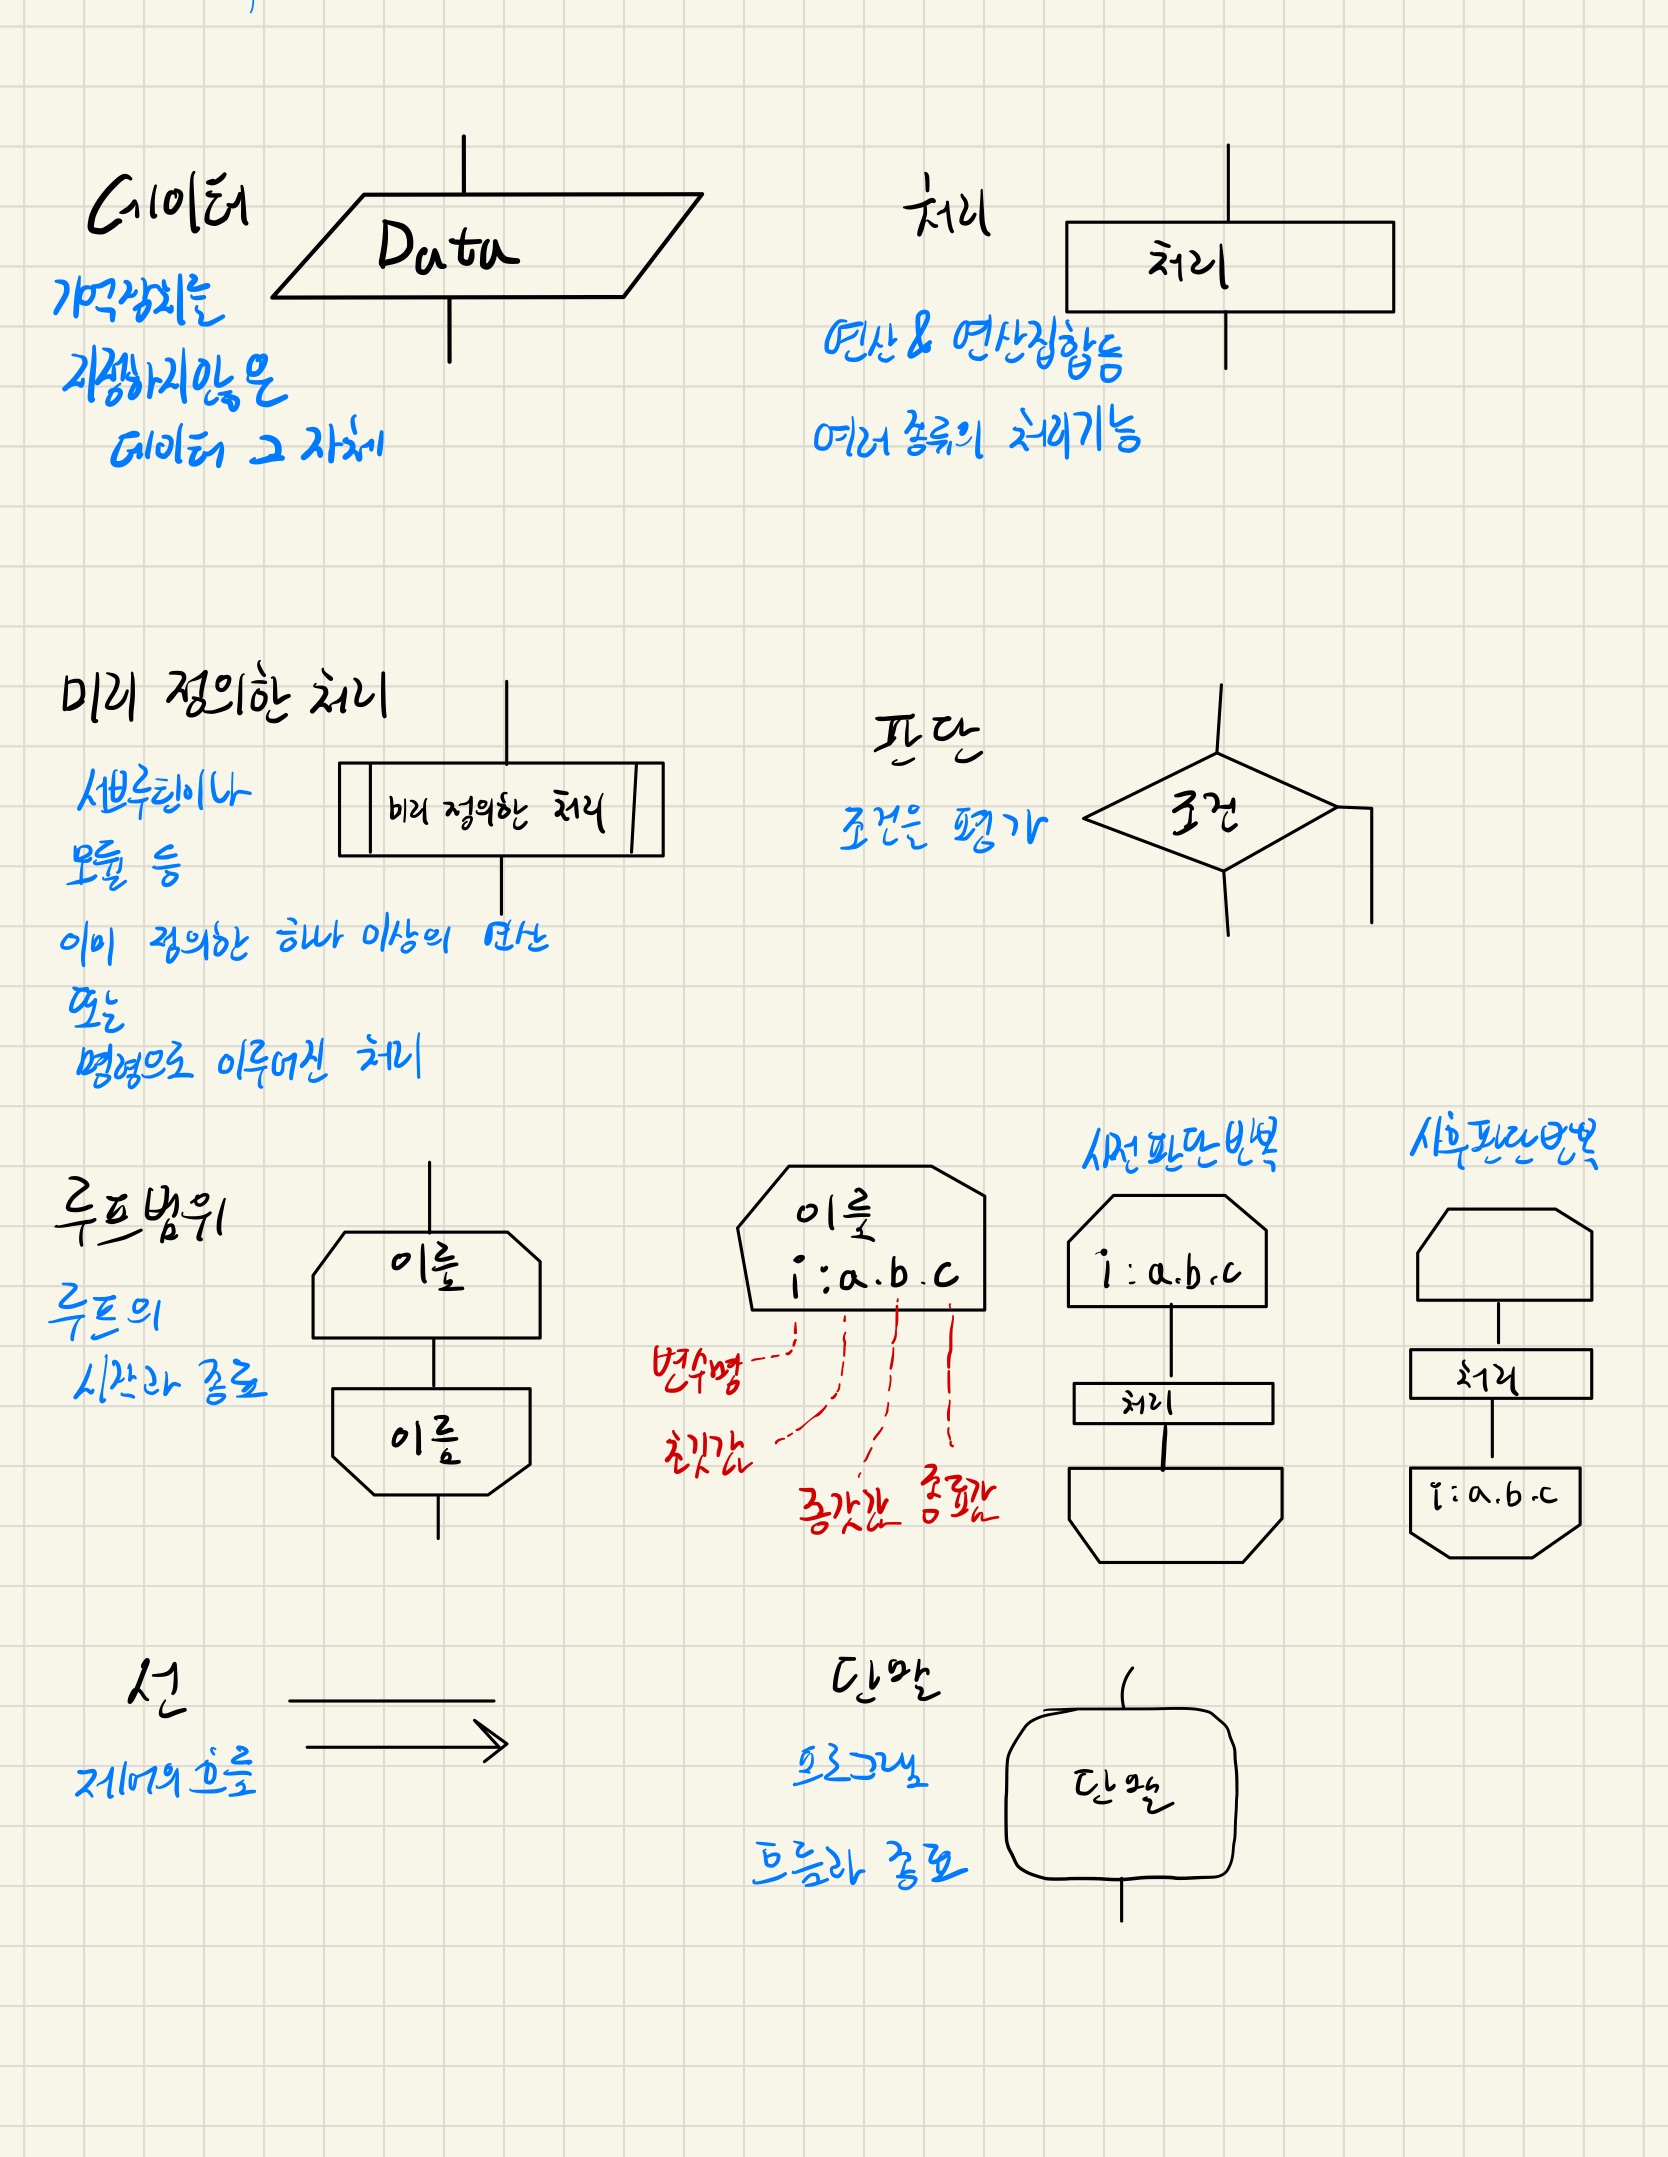 데이터
Data
기억장치를
지정하지 않은
데이터 그 자체
처리
처리
연산 & 연산집합 등
여러 종류의 처리기능
미리 정의한 처리
서브루틴이나
모듈 등
미리 정의한 처리
이미 정의한 하나 이상의 연산
또는
명령으로 이루어진 처리
판단
조건은 평가
조건
루프범위
루프의
시작과 종료
이름
이름
이름
i : a.b.c
변수명
초깃값
증갓값
종료값
사전판단반복
i : a.b.c
처리
사후판단반복
처리
i : a.b.c
선
제어의 흐름
단말
프로그램
흐름과 종료
단말